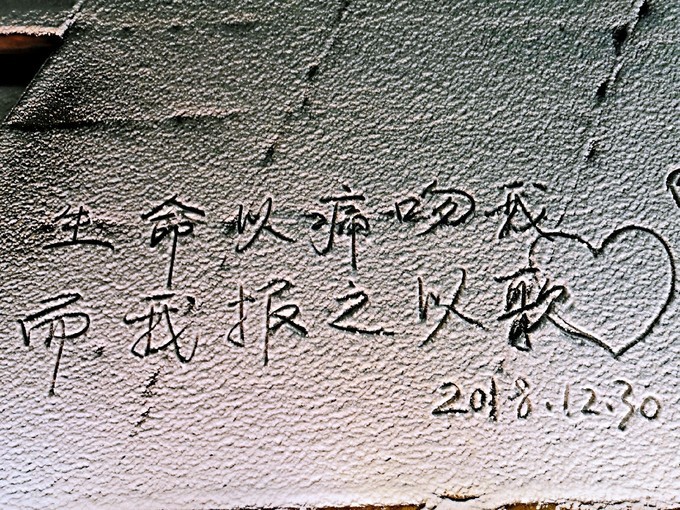 生命以痛吻我
而我报之以歌
2018.12.30